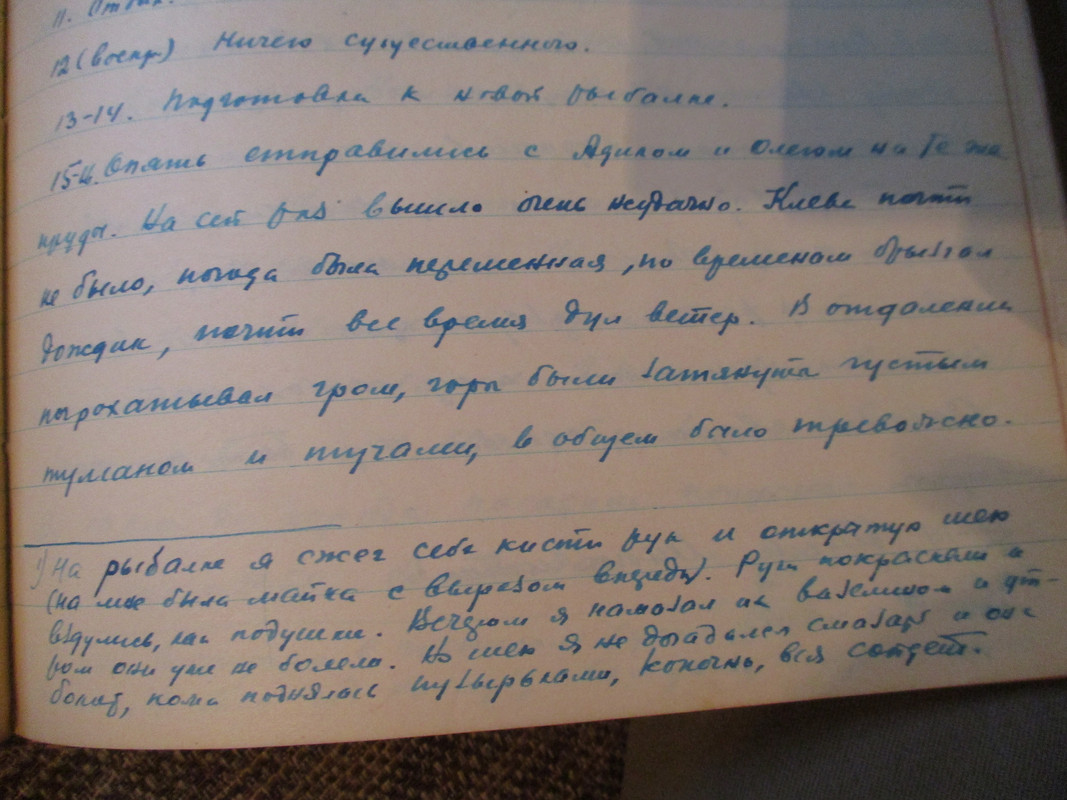 11. Отдых.
12 (воскр.) Ничего существенного.
13-14. Подготовка к новой рыбалке.
15-16. Опять отправились с Адилом и Олегом на те же
пруды. На сей раз вышло очень неудачно. Клева почти
не было, погода была переменная, по временам брызгал
дождик, почти все время дул ветер. В отдалении
погрохатывал гром, горы были затянуты густым
туманом и тучами, в общем было тревожно.
1) На рыбалке я сжег себе кисти рук и открытую шею
(на мне была майка с вырезом впереди). Руки покраснели и
вздулись, как подушки. Вечером я намазал их вазелином и ут-
ром они уже не болели. Но шею я не догадался смазать и она
болит, кожа поднялась пузырьками, конечно, вся сойдет.